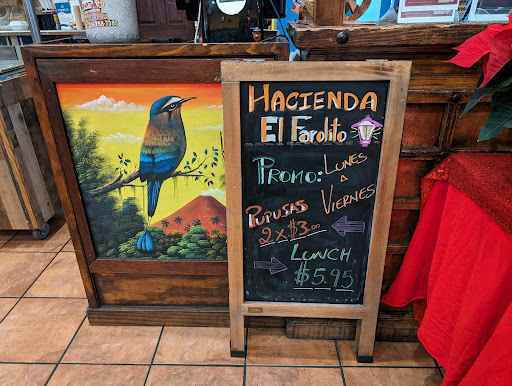 HACIENDA
El Farolito
PROMO: LUNES
A
VIERNES
PUPUSAS
2 X $3.00
LUNCH
$5.95